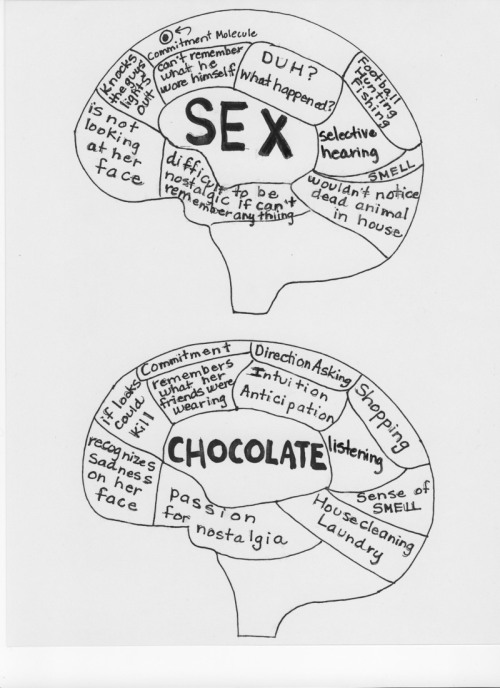 Commitment Molecule
Knocks
the guys
lights
out
can't remember
what he
wore himself
DUH?
What happened?
Football
Hunting
Fishing
is not
looking
at her
face
SEX
selective
hearing
SMELL
wouldn't notice
dead animal
in house
difficult to be
nostalgic if can't
remember any thiing
Commitment
Direction Asking
if looks
could
Kill
remembers
what her
friends were
wearing
Intuition
Anticipation
Shopping
recognizes
Sadness
on her
face
CHOCOLATE
listening
Sense of
SMELL
passion
for nostalgia
Housecleaning
Laundry